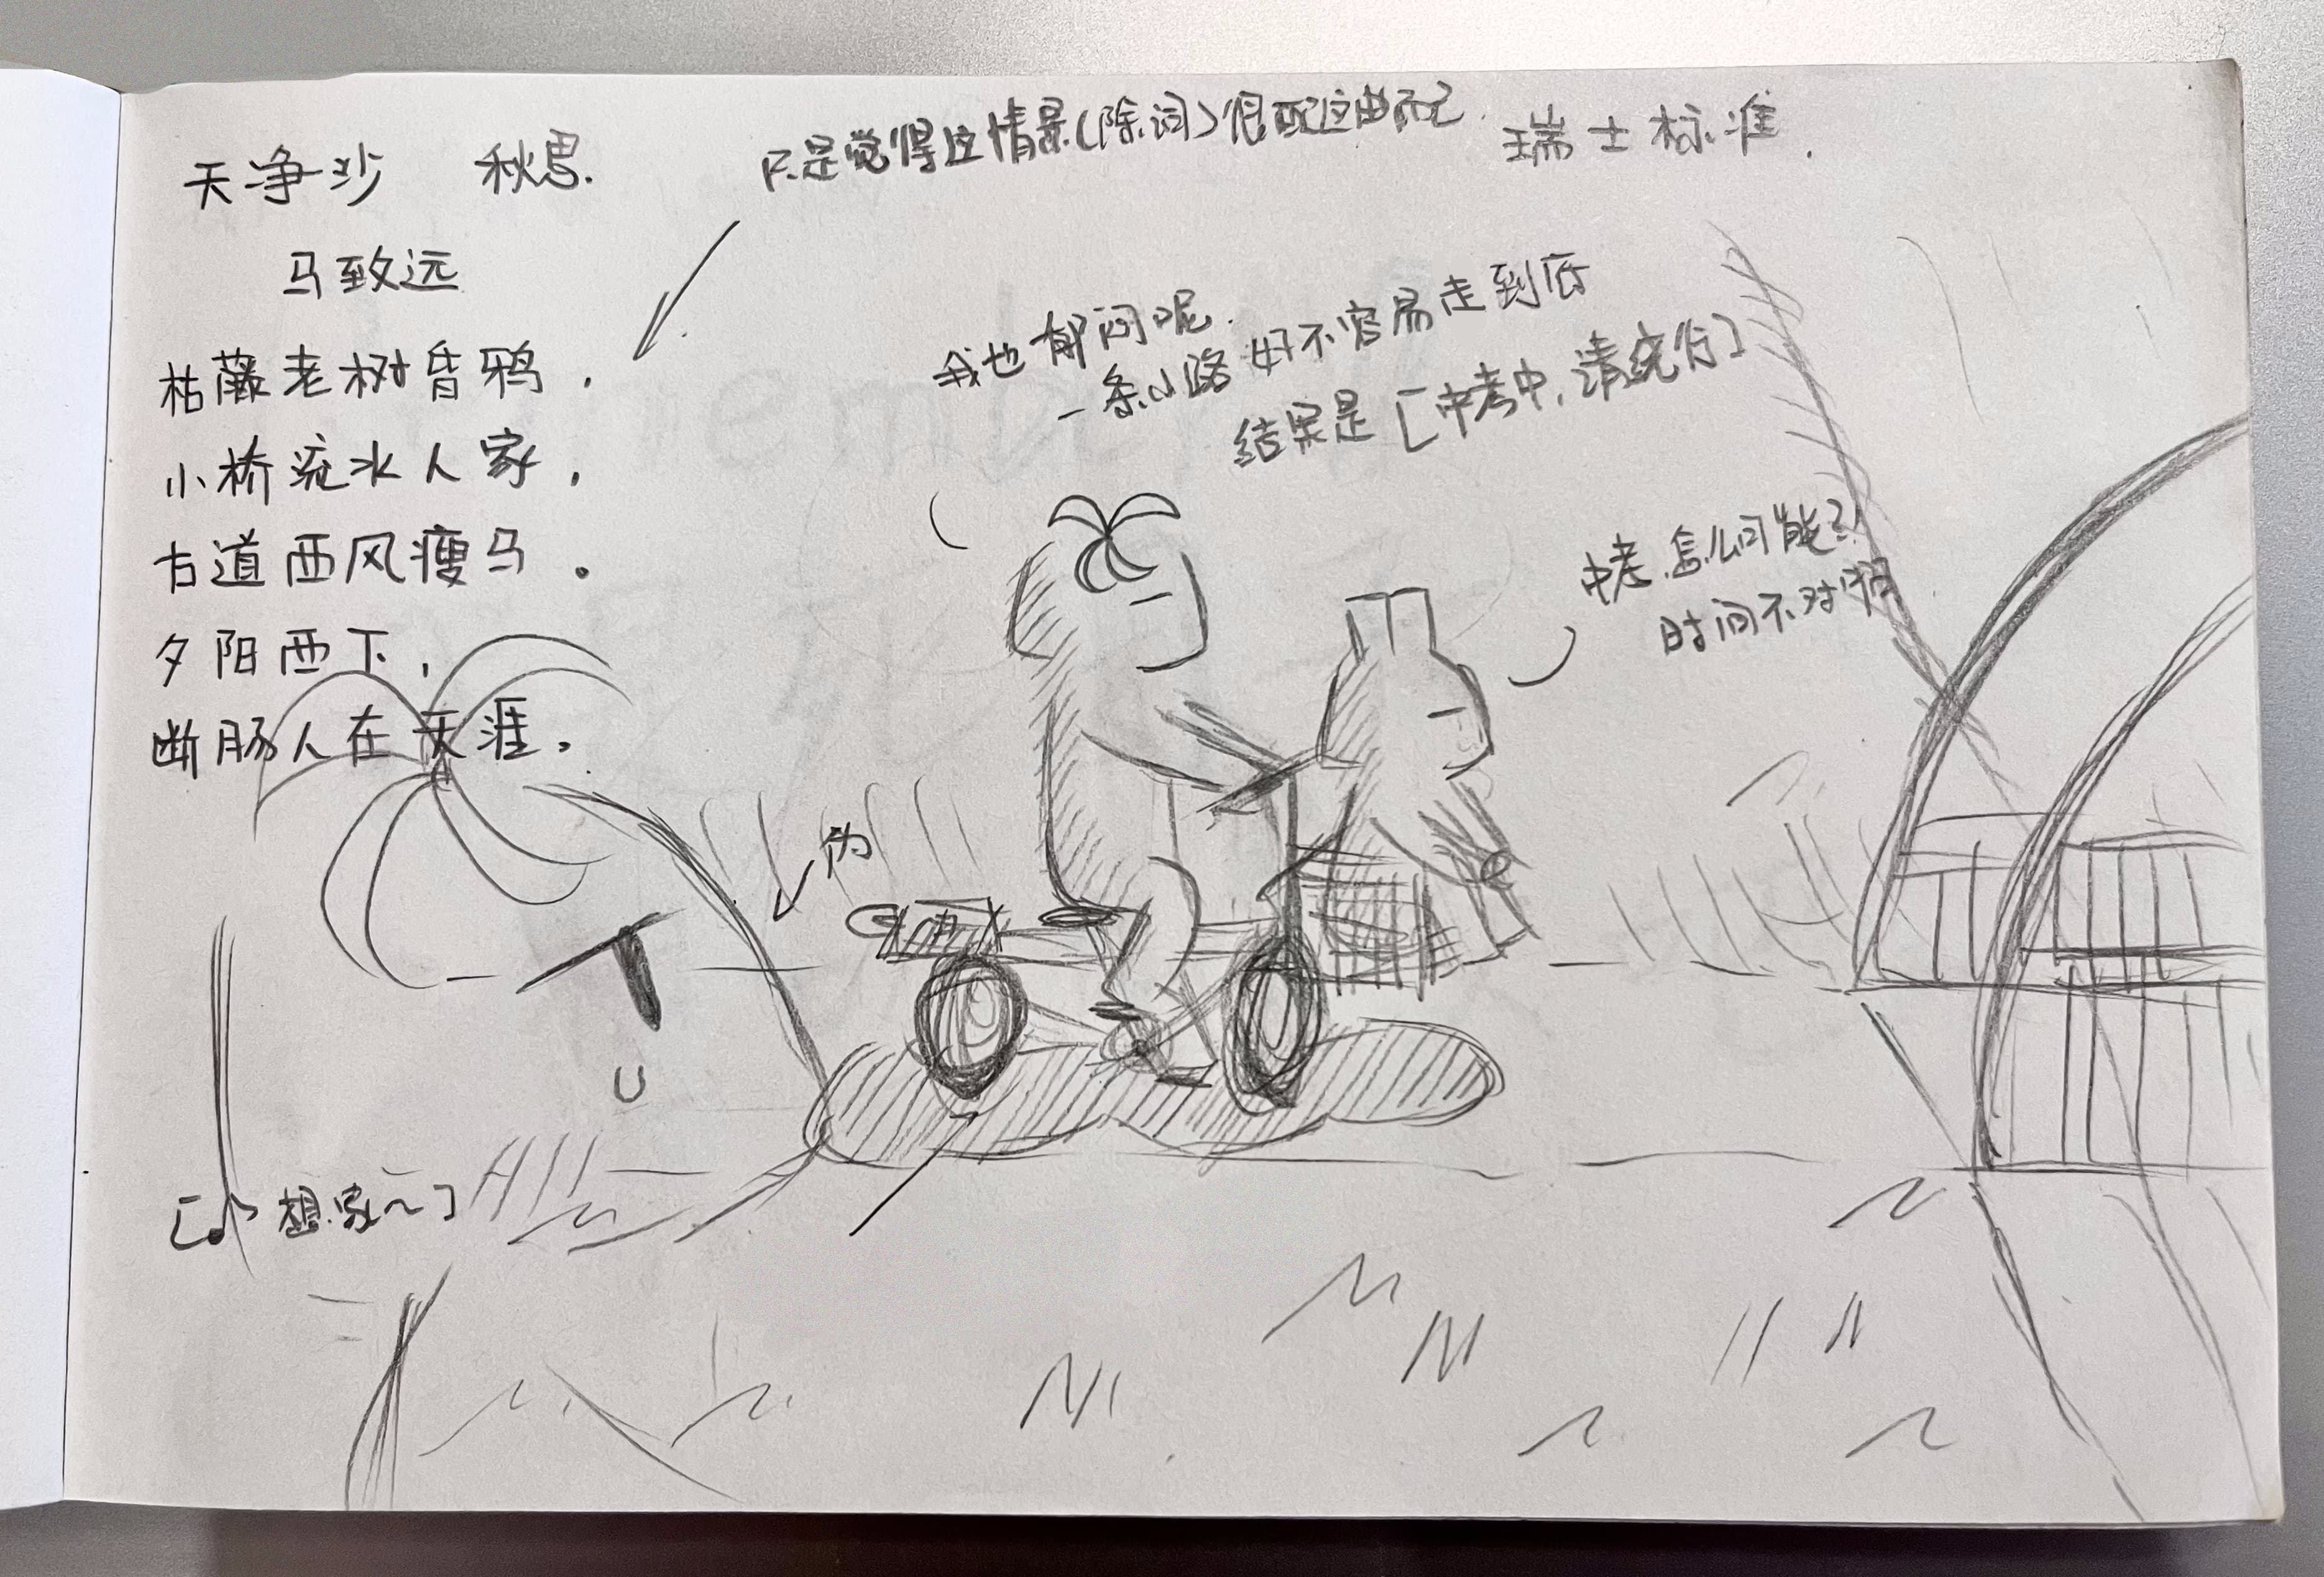 天净沙 秋思.
马致远
枯藤老树昏鸦.
小桥流水人家,
古道西风瘦马。
夕阳西下,
断肠人在天涯。
只是觉得这情景(除词)很配这曲而已.
瑞士标准.
我也郁闷呢.
一条小路好不容易走到底
结果是[中考中,请绕行]
中考.怎么可能?
时间不对啊
伪
[♪想家~]